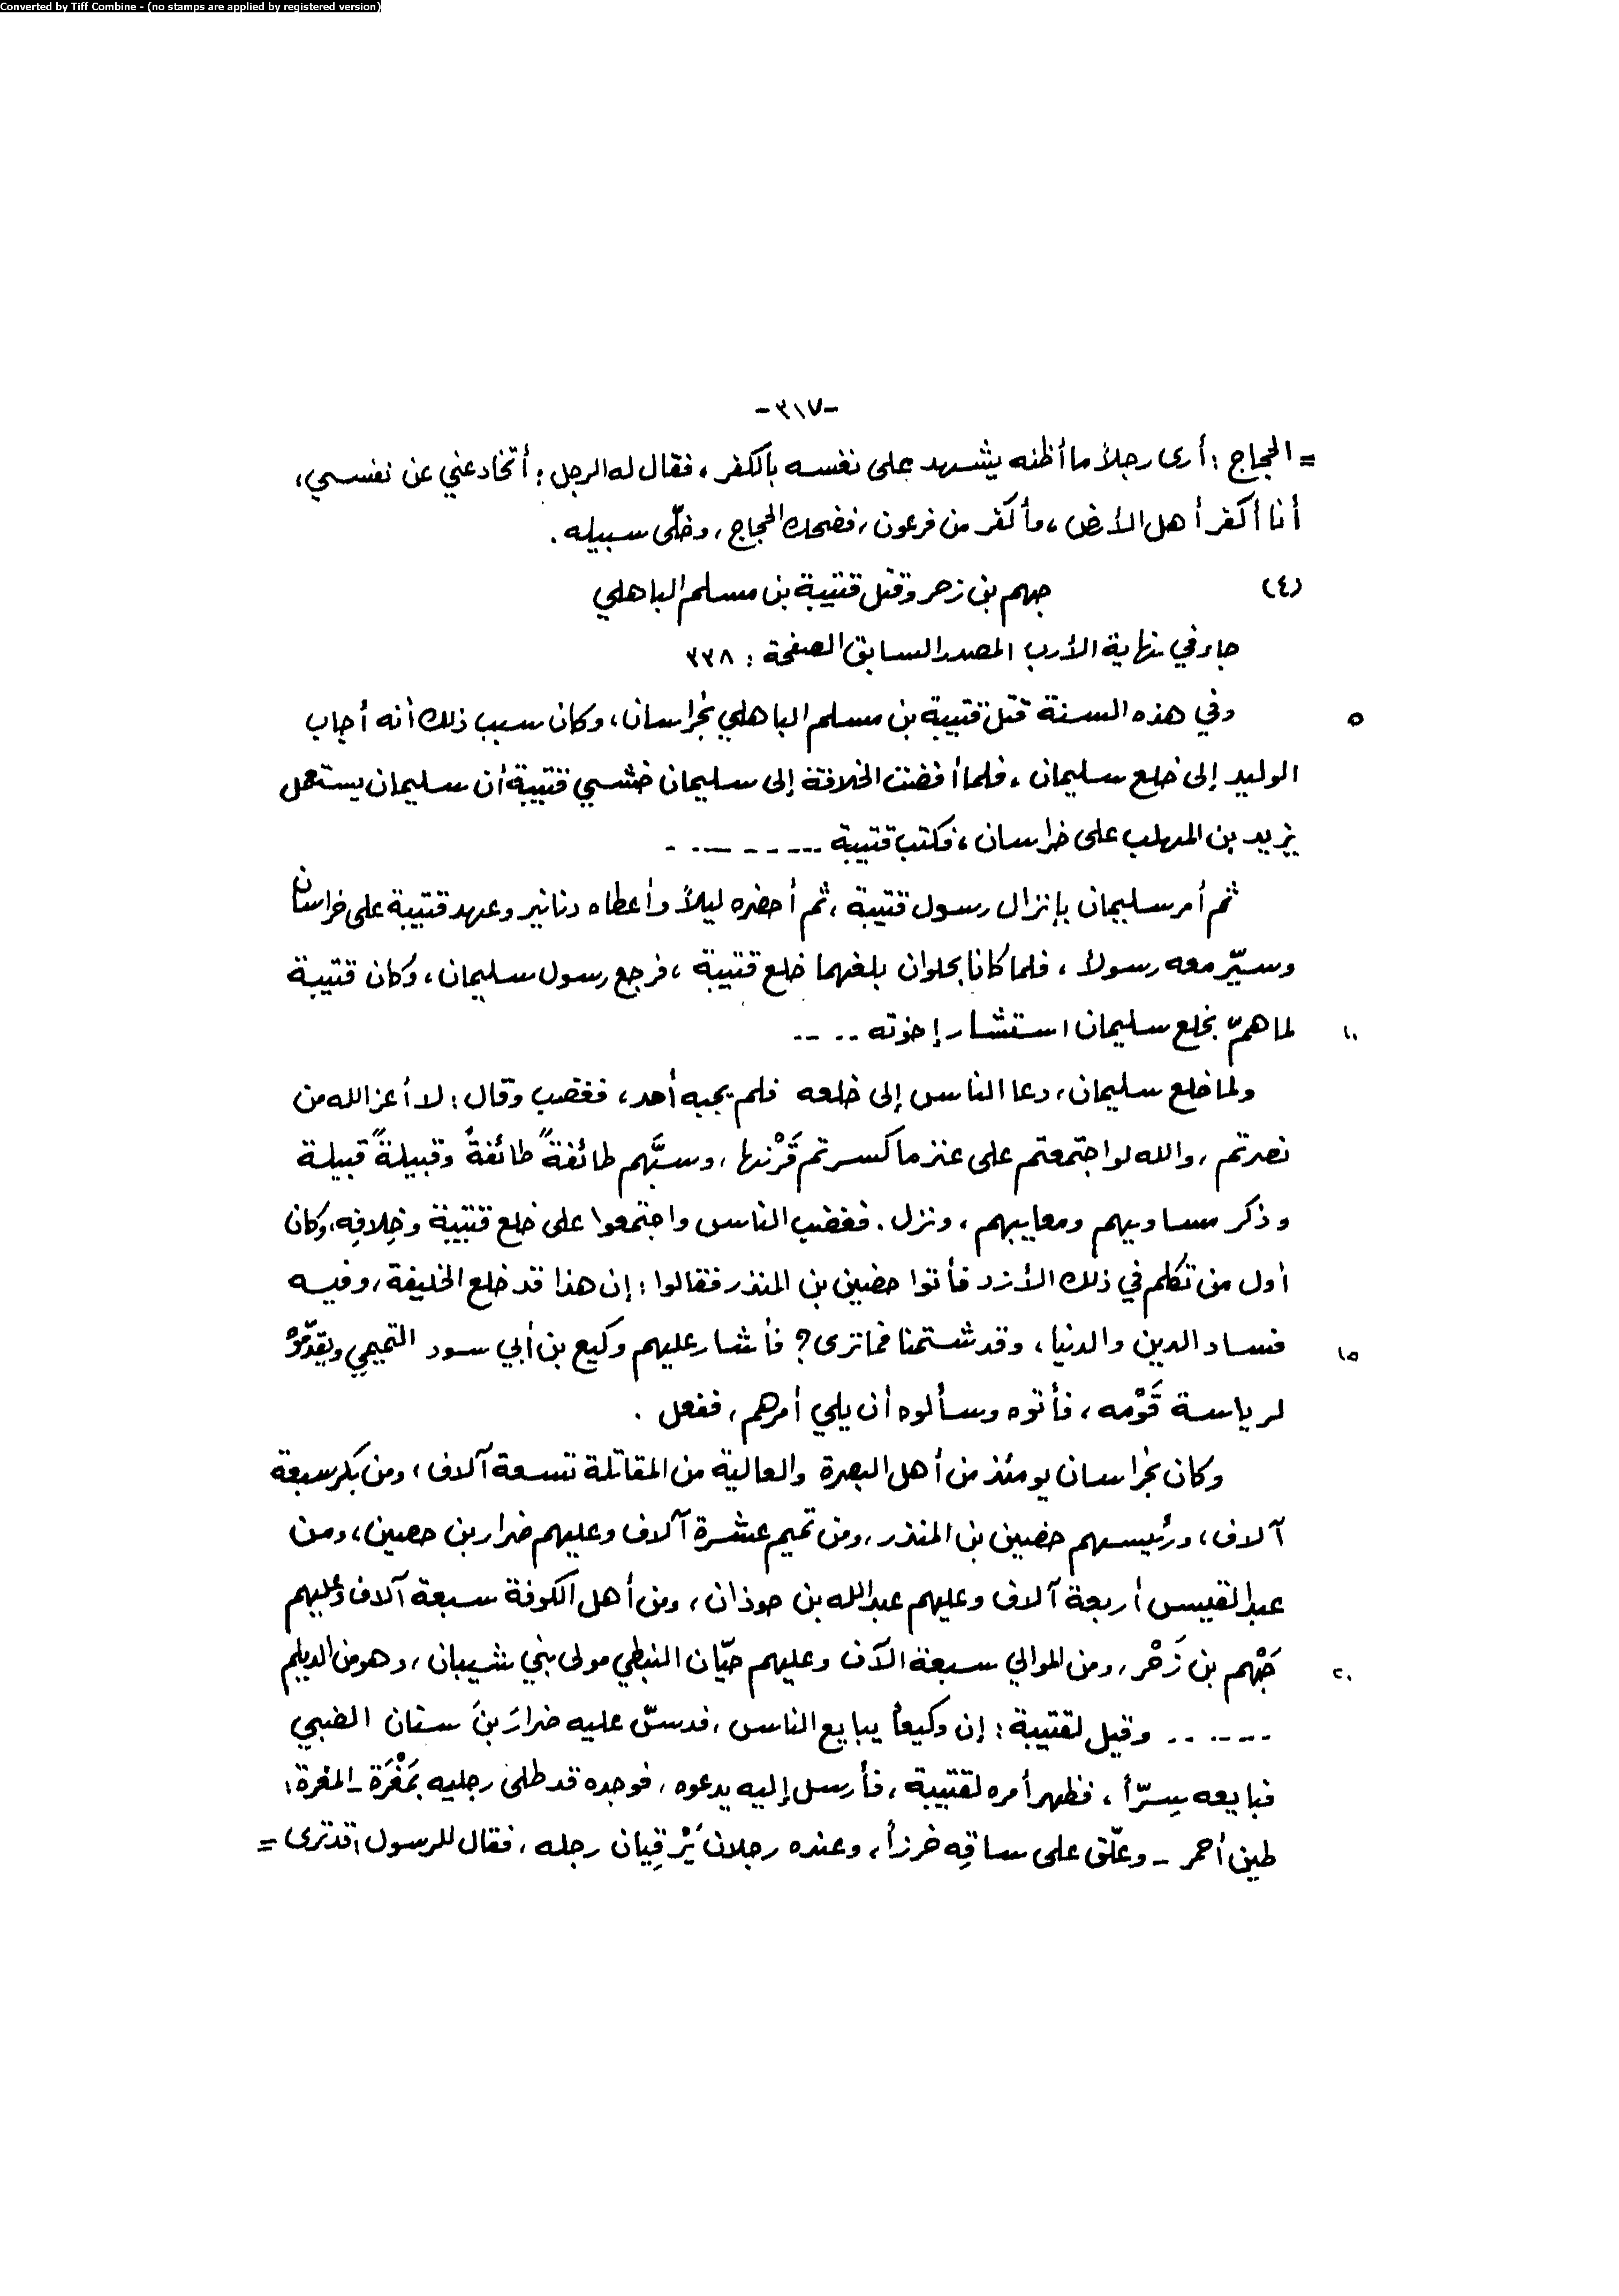 Converted by Tiff Combine - (no stamps are applied by registered version)
-٣١٧-
= الحجاج : أرى رجلاً ما أظنه يشهد على نفسه بالكفر ، فقال له الرجل : أتخادعني عن نفسي ،
أنا أكفر أهل الأرض ، وأكفر من فرعون ، فضحك الحجاج ، وخلّى سبيله .
(٤) جهم بن زحر وقتل قتيبة بن مسلم الباهلي
جاء في نهاية الأرب المصدر السابق الصفحة : ٣٣٨
٥ وفي هذه السنة قتل قتيبة بن مسلم الباهلي بخراسان ، وكان سبب ذلك أنه أجاب
الوليد إلى خلع سليمان ، فلما أفضت الخلافة إلى سليمان خشي قتيبة أن سليمان يستعمل
يزيد بن المهلب على خراسان ، فكتب قتيبة --------
ثم أمر سليمان بإنزال رسول قتيبة ، ثم أحضره ليلاً وأعطاه دنانير وعهد قتيبة على خراسان
وسيّر معه رسولاً ، فلما كانا بحلوان بلغهما خلع قتيبة ، فرجع رسول سليمان ، وكان قتيبة
١٠ لما همّ بخلع سليمان استشار إخوته ----
ولما خلع سليمان ، دعا الناس إلى خلعه فلم يجبه أحد ، فغضب وقال : لا أعز الله من
نصرتم ، والله لو اجتمعتم على عنز ما كسرتم قَرْنها ، وسبَّهم طائفةً طائفةً وقبيلةً قبيلة
وذكر مساويهم ومعايبهم ، ونزل . فغضب الناس واجتمعوا على خلع قتيبة وخِلافِه ، وكان
أول من تكلم في ذلك الأزد فأتوا حضين بن المنذر فقالوا : إن هذا قد خلع الخليفة ، وفيه
١٥ فساد الدين والدنيا ، وقد شتمنا فما ترى ؟ فأشار عليهم وكيع بن أبي سود التميمي ويقدّموْه
لرياسة قَوْمه ، فأتوه وسألوه أن يلي أمرهم ، ففعل .
وكان بخراسان يومئذ من أهل البصرة والعالية من المقاتلة تسعة آلاف ، ومن بكر سبعة
آلاف ، ورئيسهم حضين بن المنذر ، ومن تميم عشرة آلاف وعليهم ضرار بن حصين ، ومن
عبد القيس أربعة آلاف وعليهم عبد الله بن حوذان ، ومن أهل الكوفة سبعة آلاف وعليهم
٢٠ جَهْم بن زَحْر ، ومن الموالي سبعة الآف وعليهم حيّان النبطي مولى بني شيبان ، وهو من الديلم
------ وقيل لقتيبة : إن وكيعاً يبايع الناس ، فدسّ عليه ضرارَ بنَ سنان الضبي
فبايعه سِرّاً ، فظهر أمره لقتيبة ، فأرسل إليه يدعوه ، فوجده قد طلى رجليه بمَغْرَة - المغرة :
طين أحمر - وعلّق على ساقِه خرزاً ، وعنده رجلان يَرْقِيان رجله ، فقال للرسول : قد ترى =